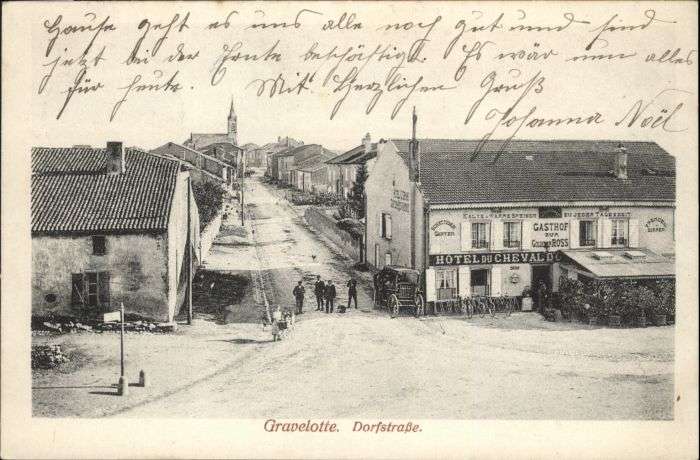 Hause geht es uns alle noch gut und sind
jetzt bei der Heute beschäftigt. Es wär nun alles
für heute. Mit Herzlichen Gruß
Johanna Noël
KALTE u. WARME SPEISEN
ZU JEDER TAGESZEIT
GASTHOF
ZUM
GOLDENEN ROSS
HÔTEL DU CHEVAL D'O
Gravelotte. Dorfstraße.